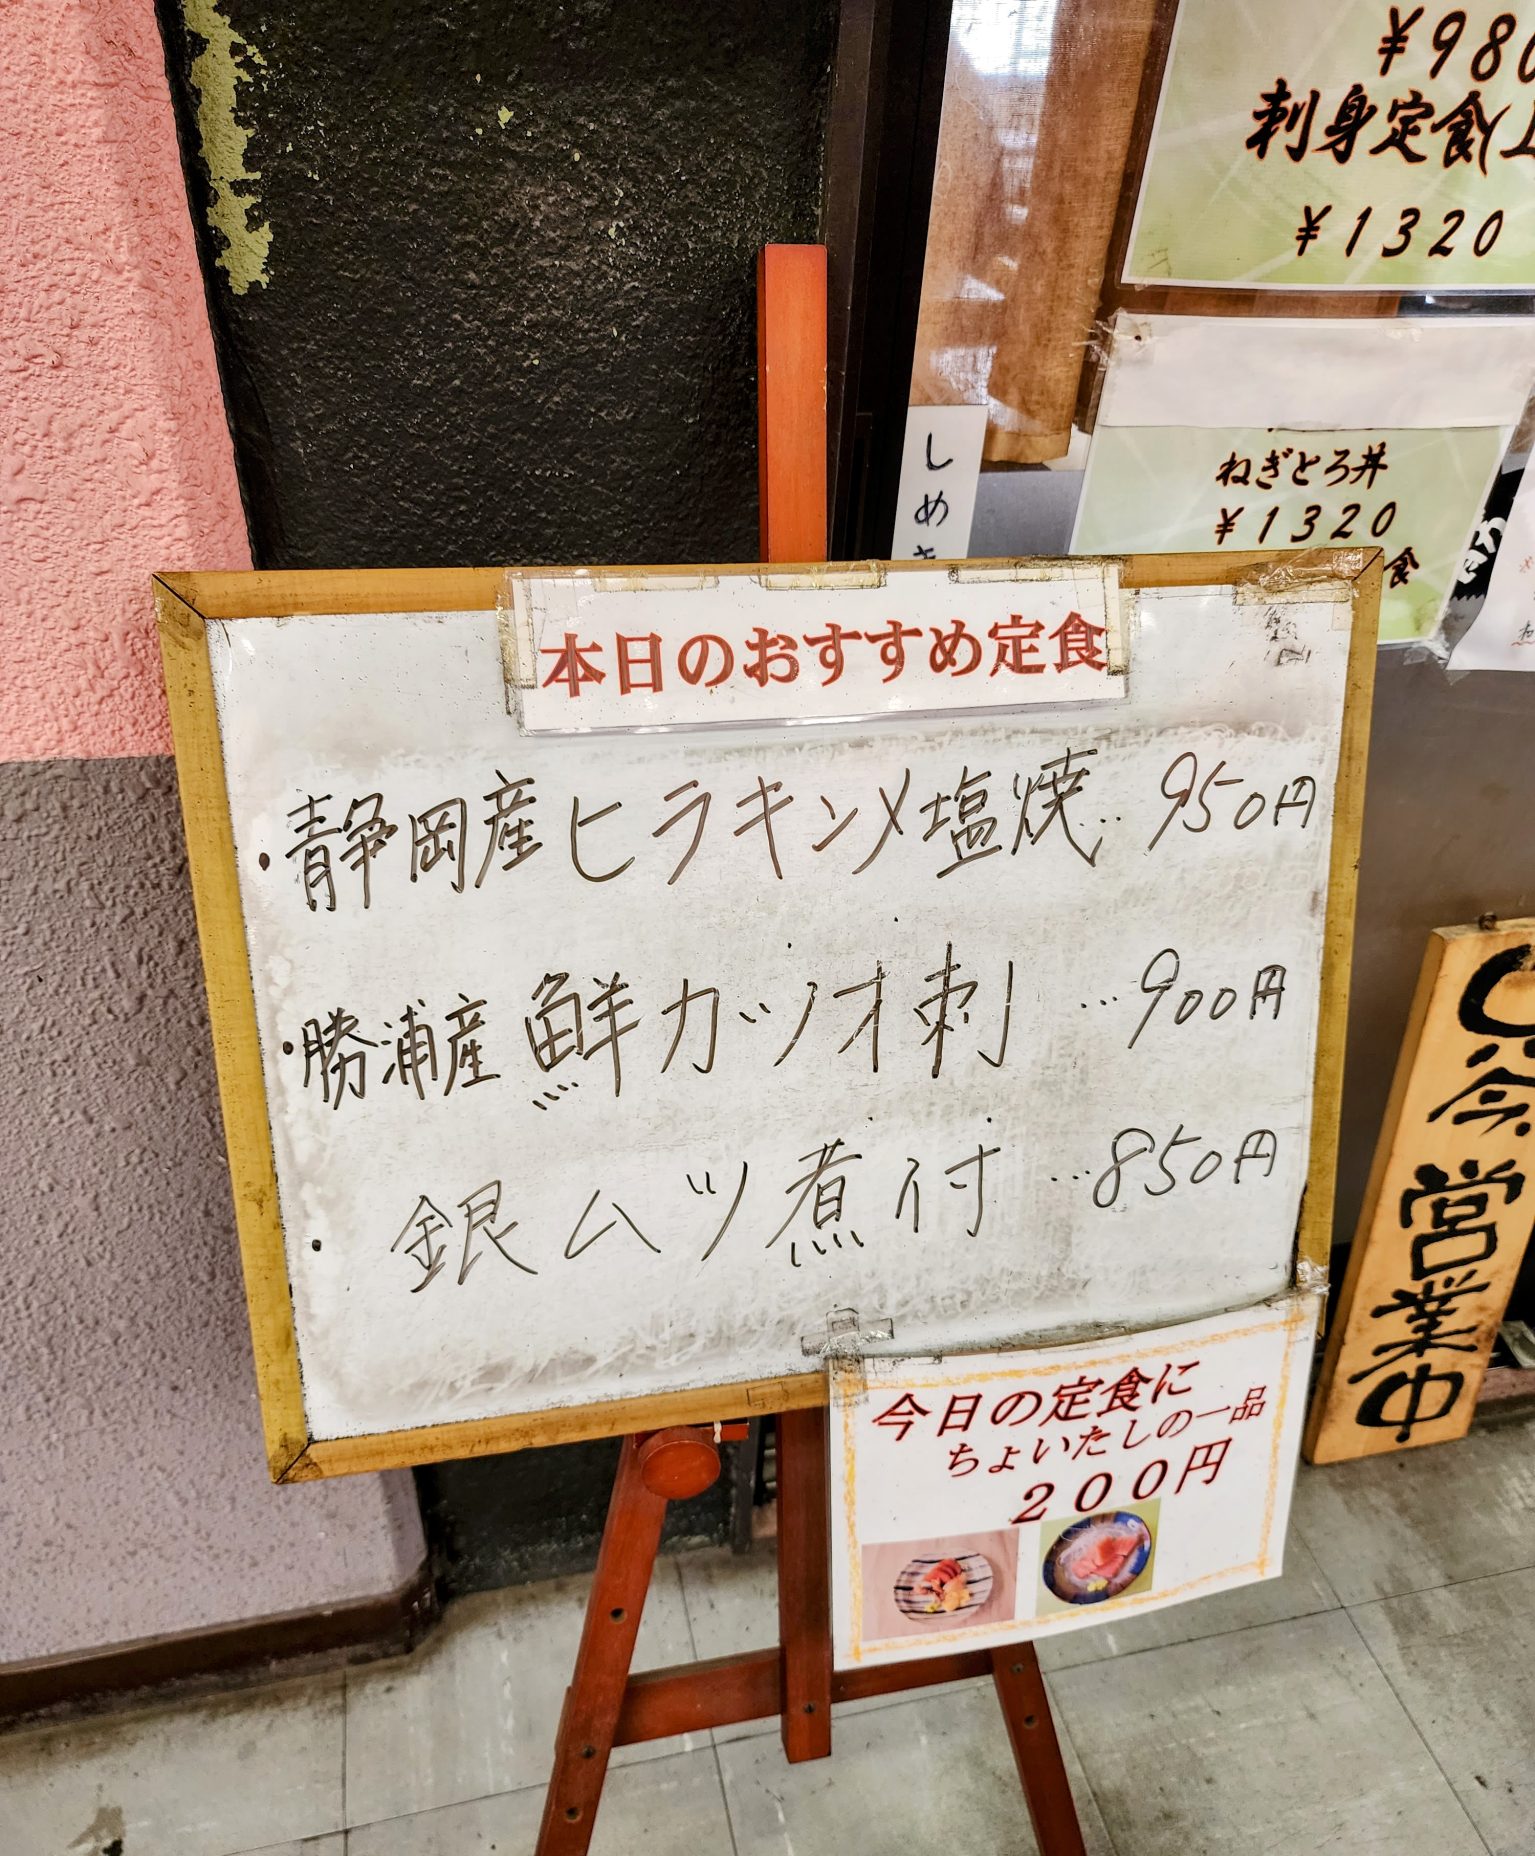 ¥980
刺身定食(上
¥1320
ねぎとろ丼
¥1320
食
しめ
本日のおすすめ定食
・静岡産ヒラキンメ塩焼…950円
・勝浦産鮮カツオ刺…900円
・銀ムツ煮付…850円
今日の定食に
ちょいたしの一品
200円
営業中